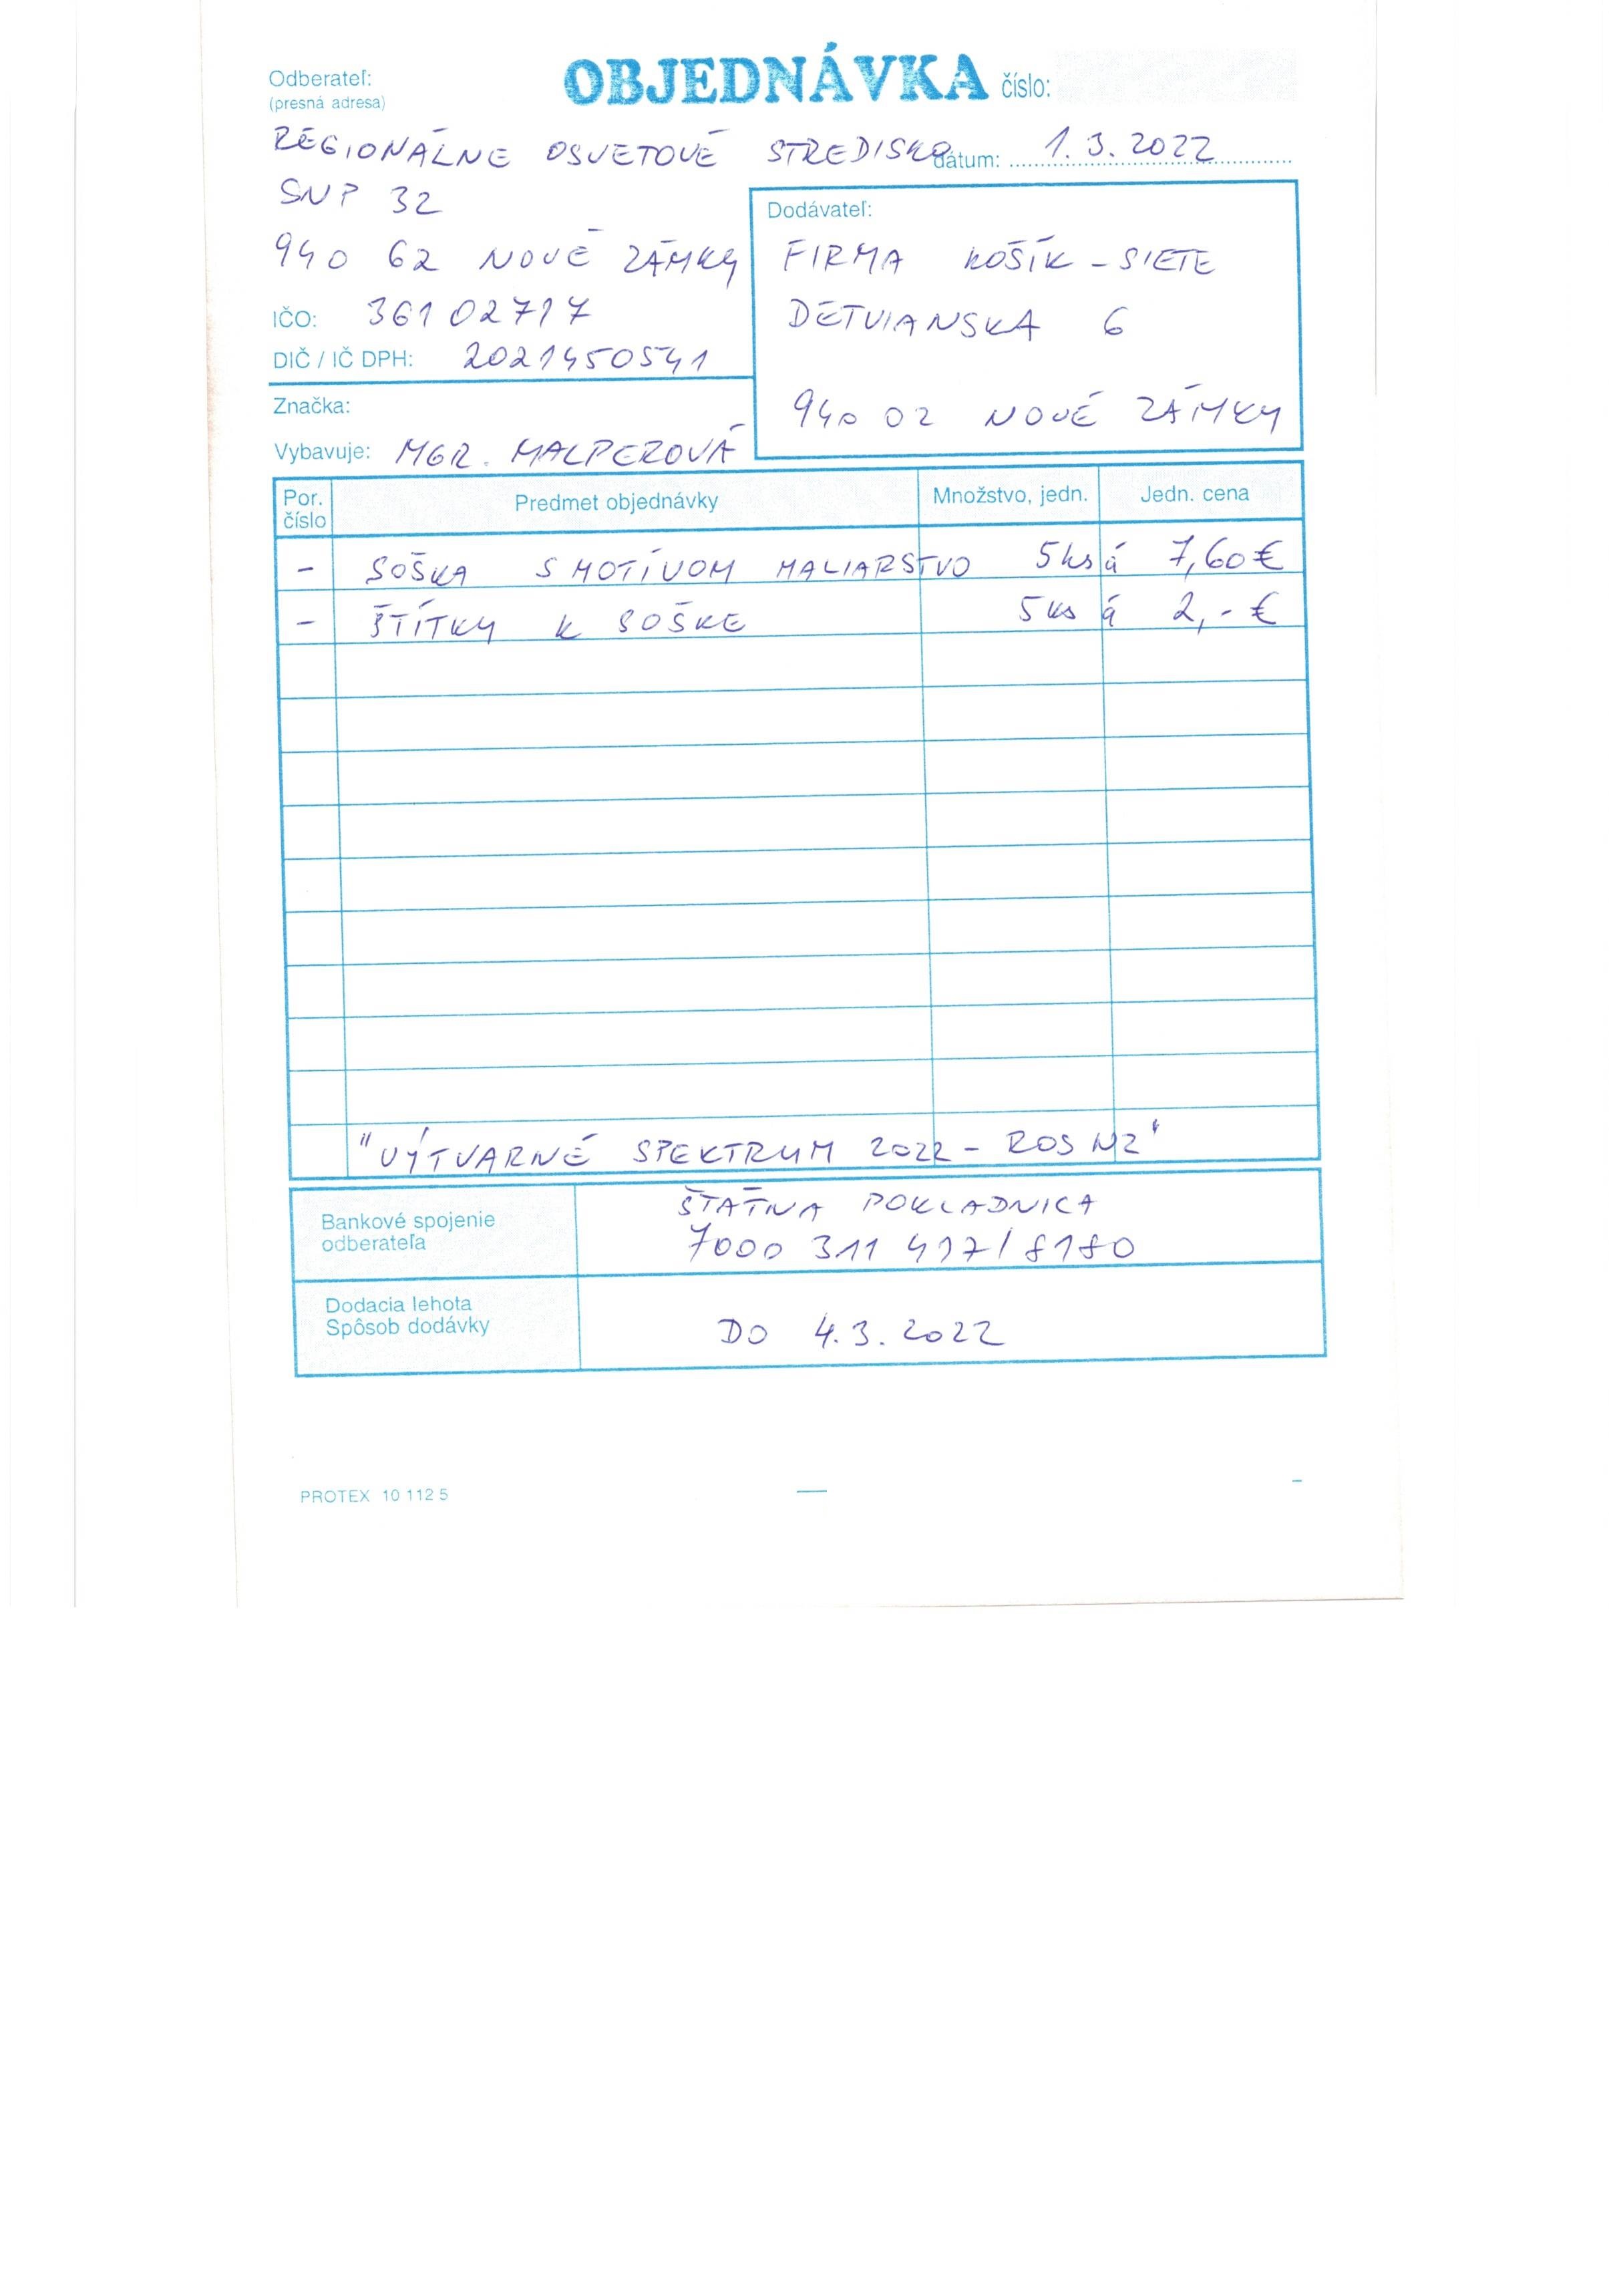 Odberateľ:
(presná adresa)
OBJEDNÁVKA číslo:
REGIONÁLNE OSVETOVÉ STREDISKO
dátum: 1.3.2022
SNP 32
940 62 NOVÉ ZÁMKY
IČO: 36102717
DIČ / IČ DPH: 2021450541
Značka:
Vybavuje: MGR. MALPEROVÁ
Dodávateľ:
FIRMA KOŠÍK - SIETE
DETVIANSKA 6
940 02 NOVÉ ZÁMKY
Por. číslo Predmet objednávky Množstvo, jedn. Jedn. cena
- SOŠKA S MOTÍVOM MALIARSTVO 5 ks á 7,60 €
- ŠTÍTKY K SOŠKE 5 ks á 2,- €
"VÝTVARNÉ SPEKTRUM 2022 - ROS NZ"
Bankové spojenie
odberateľa
ŠTÁTNA POKLADNICA
7000 311 417/8180
Dodacia lehota
Spôsob dodávky
DO 4.3.2022
PROTEX 10 112 5